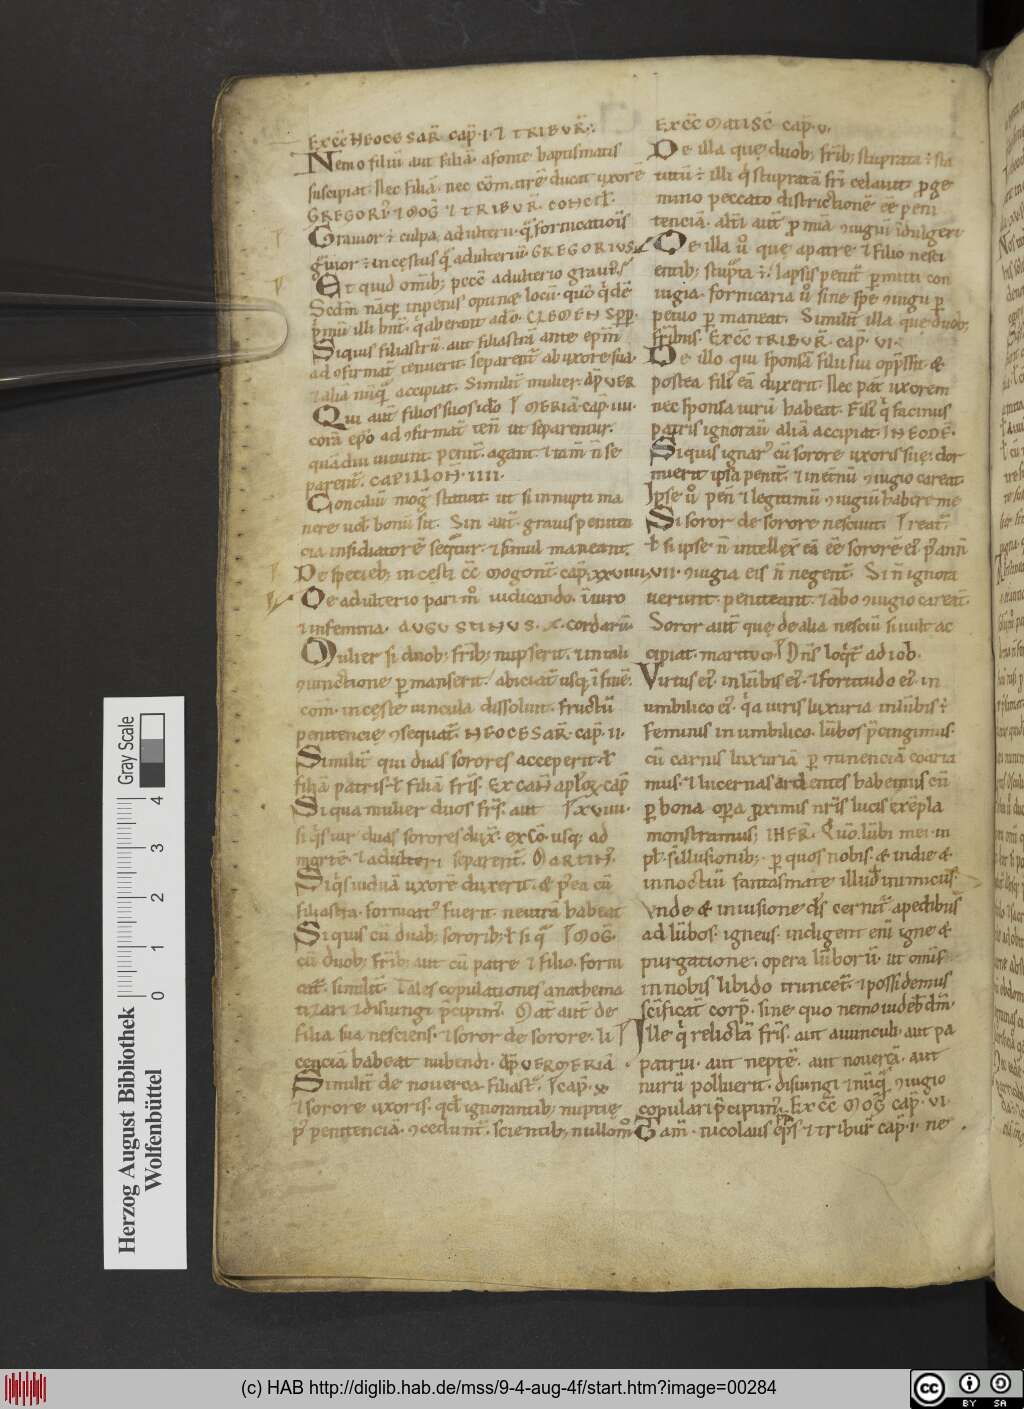 Excc̄ NEOCESAR̄ cap̄ I. 7 TRIBVR̄.
Nemo filiū aut filiā a fonte baptismatis
suscipiat. Nec filiā nec cōmatrē ducat uxorē
GREGORI' 7 MOḠ 7 TRIBVR̄ CONCIL̄.
Grauior ē culpa adulterii q̄ fornicatiōis
grauior ē incęstus q̄ adulteriū. GREGORIVS.
Et quid omib; pecc̄ adulterio grauiꝰ
Scdm̄ nāq; in penis optinet locū. quō q̄ dē
primū illi hnt̄ q̄ aberrant a dō. CLEMENS PP.
Siquis filiastrū aut filiastrā ante ep̄m
ad ɔfirmat̄ tenuerit. separent̄ ab uxore sua
7 aliā nūq̄ accipiat. Similit̄ mulier. AP̄ VER
Qui aut̄ filios suos id̄o MERIA. cap̄ IIII.
corā ep̄o ad ɔfirmat̄ ten̄ ut separentur.
quādiu uiuunt penit̄ agant. 7 tam̄ n̄ se
parent̄. CAPILLOŃ. IIII.
Conciliū moḡ statuit ut si innupti ma
nere uoł bonū sit. Sin aut̄ grauis peniten
cia insidiatorē seq̄tur. 7 simul maneant.
De specieb; incęsti cc̄ MOGONT̄ cap̄ XXVIIII.
De adulterio pari mō iudicando. ī uiro
7 in femina. AUGUSTINUS. X. cordarū.
Mulier si duob; frīb; nupserit. 7 in tali
ɔiunctione p̄manserit. abiciat̄ usq; ī finē.
com̄. in cęste uincula dissoluit. fructū
penitencię ɔsequat̄. NEOCESAR̄. cap̄ II.
Similit̄ qui duas sorores acceperit. ł
filiā patris. ł filiā fr̄is. Ex CAN̄ APLOꝜ. CAP̄
Si qua mulier duos fr̄s aut XVIIII.
si q̄s uir duas sorores dux̄. excō. usq; ad
mortē. 7 adulteri separent̄. MARTIN'.
Si q̄s uiduā uxorē duxerit. & p̄ea cū
filiastra fornicatꝰ fuerit. neutrā habeat
Si quis cū duab; sororib; ł si q̄ MOḠ.
cū duob; fr̄ib; aut cū patre 7 filio. forni
cat̄. similit̄. Tales copulationes anathema
tizari 7 disiungi p̄cipimꝰ. Mat̄ aut̄ de
filia sua nesciens. 7 soror de sorore. li
cenciā habeat nubendi. AP̄ VERMERIA
Similit̄ de nouerca. filiast̄. cap̄ x
7 sorore uxoris. qd̄ ignorantib; nuptię
p̄ penitenciā ɔcedunt̄. scientib; nullomō.
Excc̄ MATISC̄ cap̄ V.
De illa quę duob; fr̄ib; stuprata ē sta
tutū ē illi q̄ stupratā fr̄i celauit p̄ ge
mino peccato districtionē ēē peni
tenciā. altī aut̄ p̄ mīa ɔiugiū īdulgeri
De illa u̇ quę a patre 7 filio nesci
entib; stup̄ta ē. lapsis penit̄ p̄mitti con
iugia. fornicaria u̇ sine spe ɔiugii p̄
petuo p̄maneat. Similit̄ illa quę duob;
fr̄ibus. Excc̄ TRIBVR̄. CAP̄. VI.
De illo qui sponsā filii sui opp̄ssit. &
postea filiꝰ eā duxerit. Nec pat̄ uxorem
nec sponsa uirū habeat. Filiꝰ q̄ facinus
patris ignorauit aliā accipiat. IN EODĒ.
Si quis ignarꝰ cū sorore uxoris suę dor
mierit ipsa penit̄. 7 in et̄nū ɔiugio careat
Ipse u̇ pen̄ 7 legitimū ɔiugiū habere me
Si soror de sorore nesciuit. reat̄.
ł si ipse n̄ intellex̄ eā ēē sororē eiꝰ p̄ ann̄
VII. ɔiugia eis n̄ negent̄. Si n̄ ignora
uerunt. peniteant. 7 ābo ɔiugio careāt.
Soror aut̄ quę de alia nesciū si uult ac
cipiat maritū. Dn̄s loq̄t̄ ad iob.
Virtus eiꝰ in lūbis eiꝰ. 7 fortitudo eiꝰ in
umbilico eiꝰ. q̄a uiris luxuria in lūbis ē
feminis in umbilico. lūbos p̄cingimus
cū carnis luxuriā p̄ ɔtinenciā coarta
mus. 7 lucernas ardentes habemus cū
p̄ bona op̄a p̄ximis nr̄is lucis exēpla
monstramus. IHER̄. Quō lūbi mei in
pł s̄ illusionib;. p̄ quos nobis & in die &
in noctiū fantasmate illud̄ inimicus.
Vnde & in uisione dī s cernit̄ a pedibus
ad lūbos. igneus. indigent eni igne &
purgatione. opera lūborū. ut omīs
in nobis libido truncet̄. 7 possidemus
sc̄ificat̄ corp̄. sine quo nemo uidebit dm̄.
Ille q̄ relictā fr̄is. aut auunculi. aut pa
patrui. aut neptē. aut nouercā. aut
nurū polluerit. disiungi 7 nūq̄ ɔiugio
copulari p̄cipimꝰ. Excc̄ MOḠ cap̄ VI.
Tam̄ nicolaus PP̄ 7 TRIBUR̄ cap̄ I. ne
Herzog August Bibliothek
Wolfenbüttel
0 1 2 3 4
Gray Scale
(c) HAB http://diglib.hab.de/mss/9-4-aug-4f/start.htm?image=00284
cc BY SA